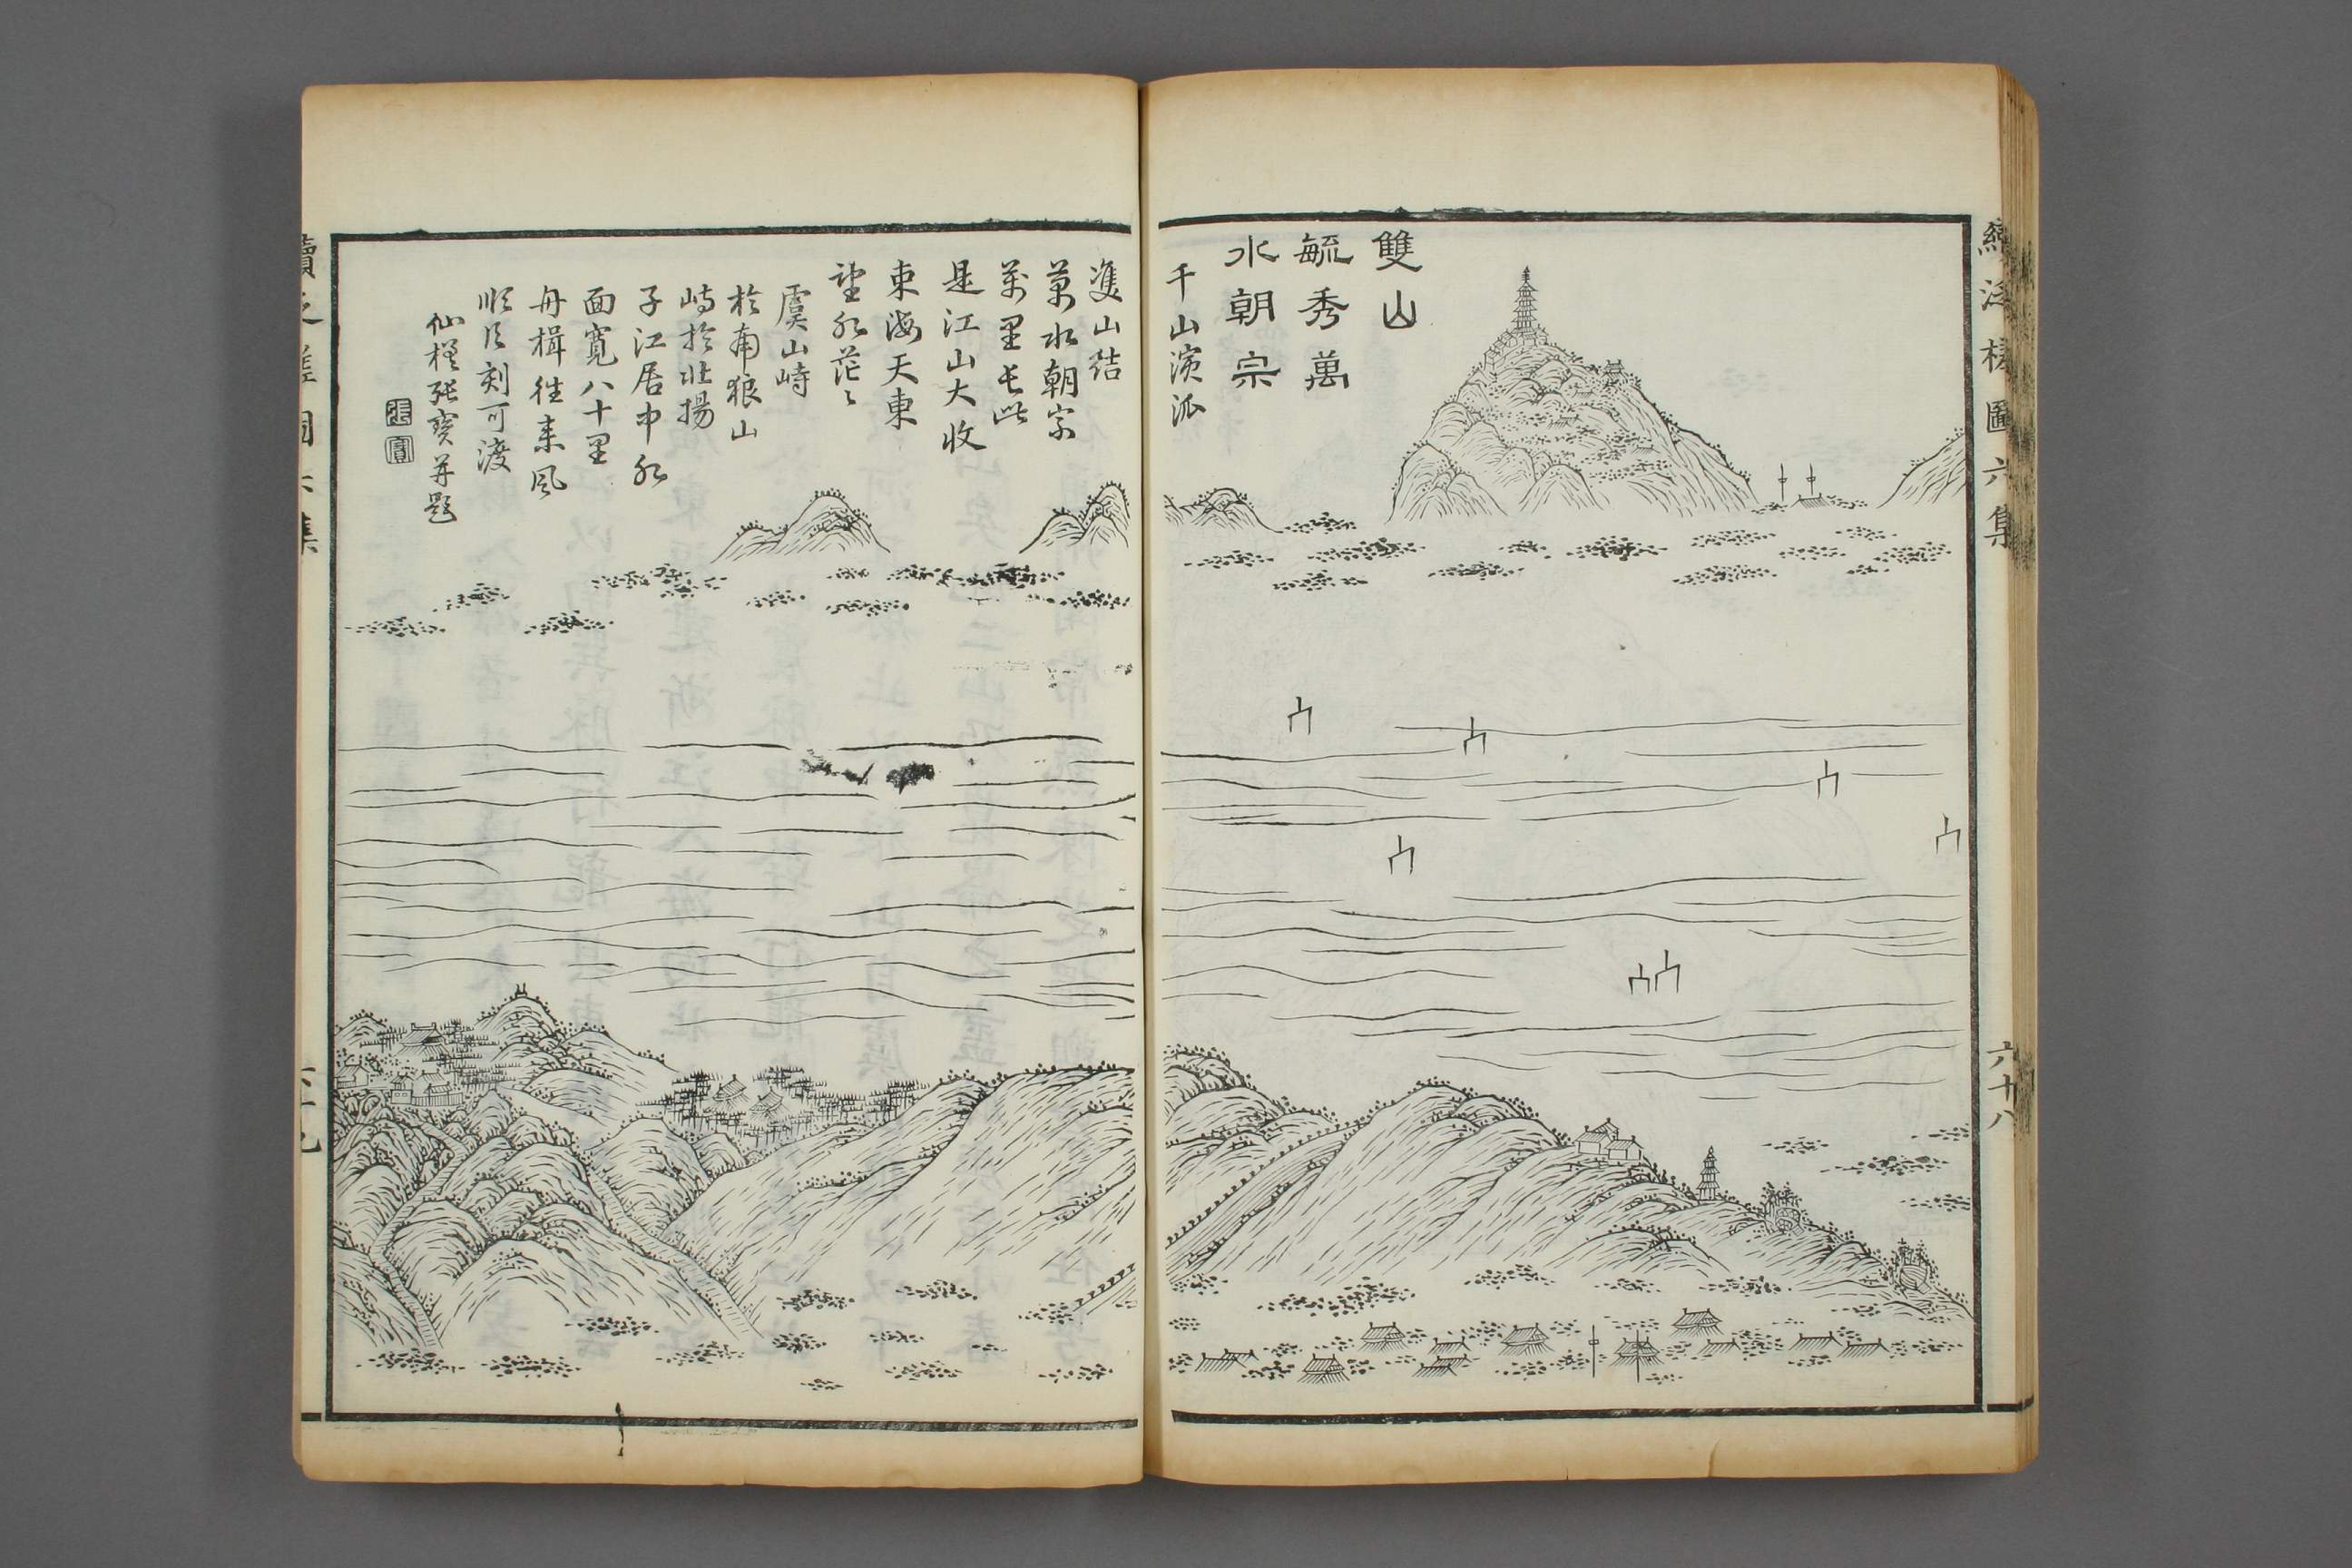 雙山
毓秀萬
水朝宗
千山演派
雙山結
萬水朝宗
萬里長此
是江山大收
東海天東
望水茫〻
虞山峙
於南狼山
峙於北揚
子江居中水
面寬八十里
舟楫往來風
順片刻可渡
仙槎張寶并題
張寶
續泛槎圖六集
六十八
續泛槎圖六集